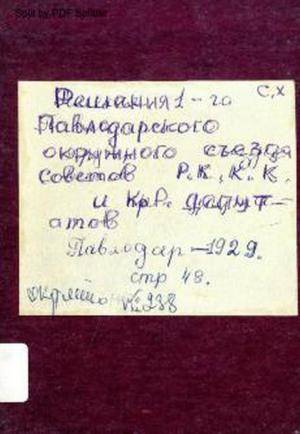 Split by PDF Splitter
Решения 1-го С,Х
Павлодарского
окружного съезда
советов Р.К, К. К.
и Кр.Р. депут-
атов
Павлодар-1929.
стр 48.
№238